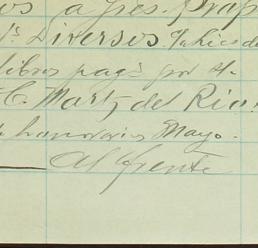 a Gres. Prap
Diversos. Takies de
libros pag⁵ por H.
C. Martz del Rio.
honorarios Mayo.
Al frente